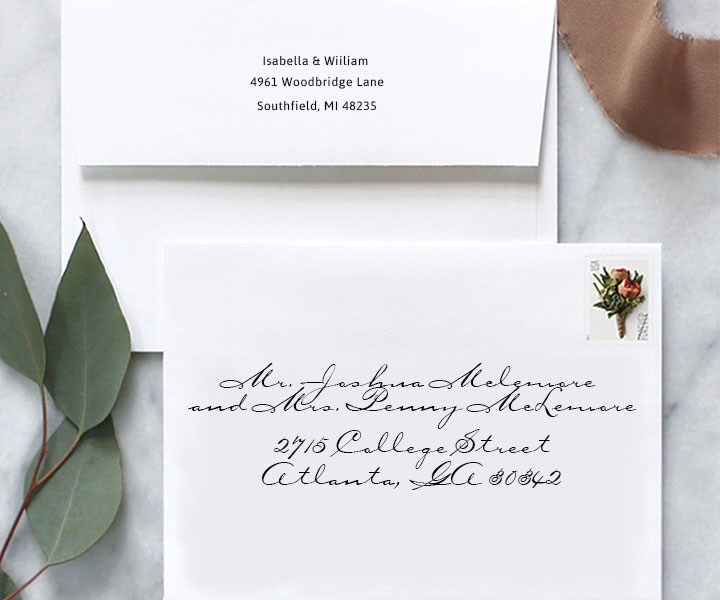 Isabella & Wiiliam
4961 Woodbridge Lane
Southfield, MI 48235
USA
FOREVER
Mr. Joshua Mclemore
and Mrs. Penny McLemore
2715 College Street
Atlanta, GA 30342